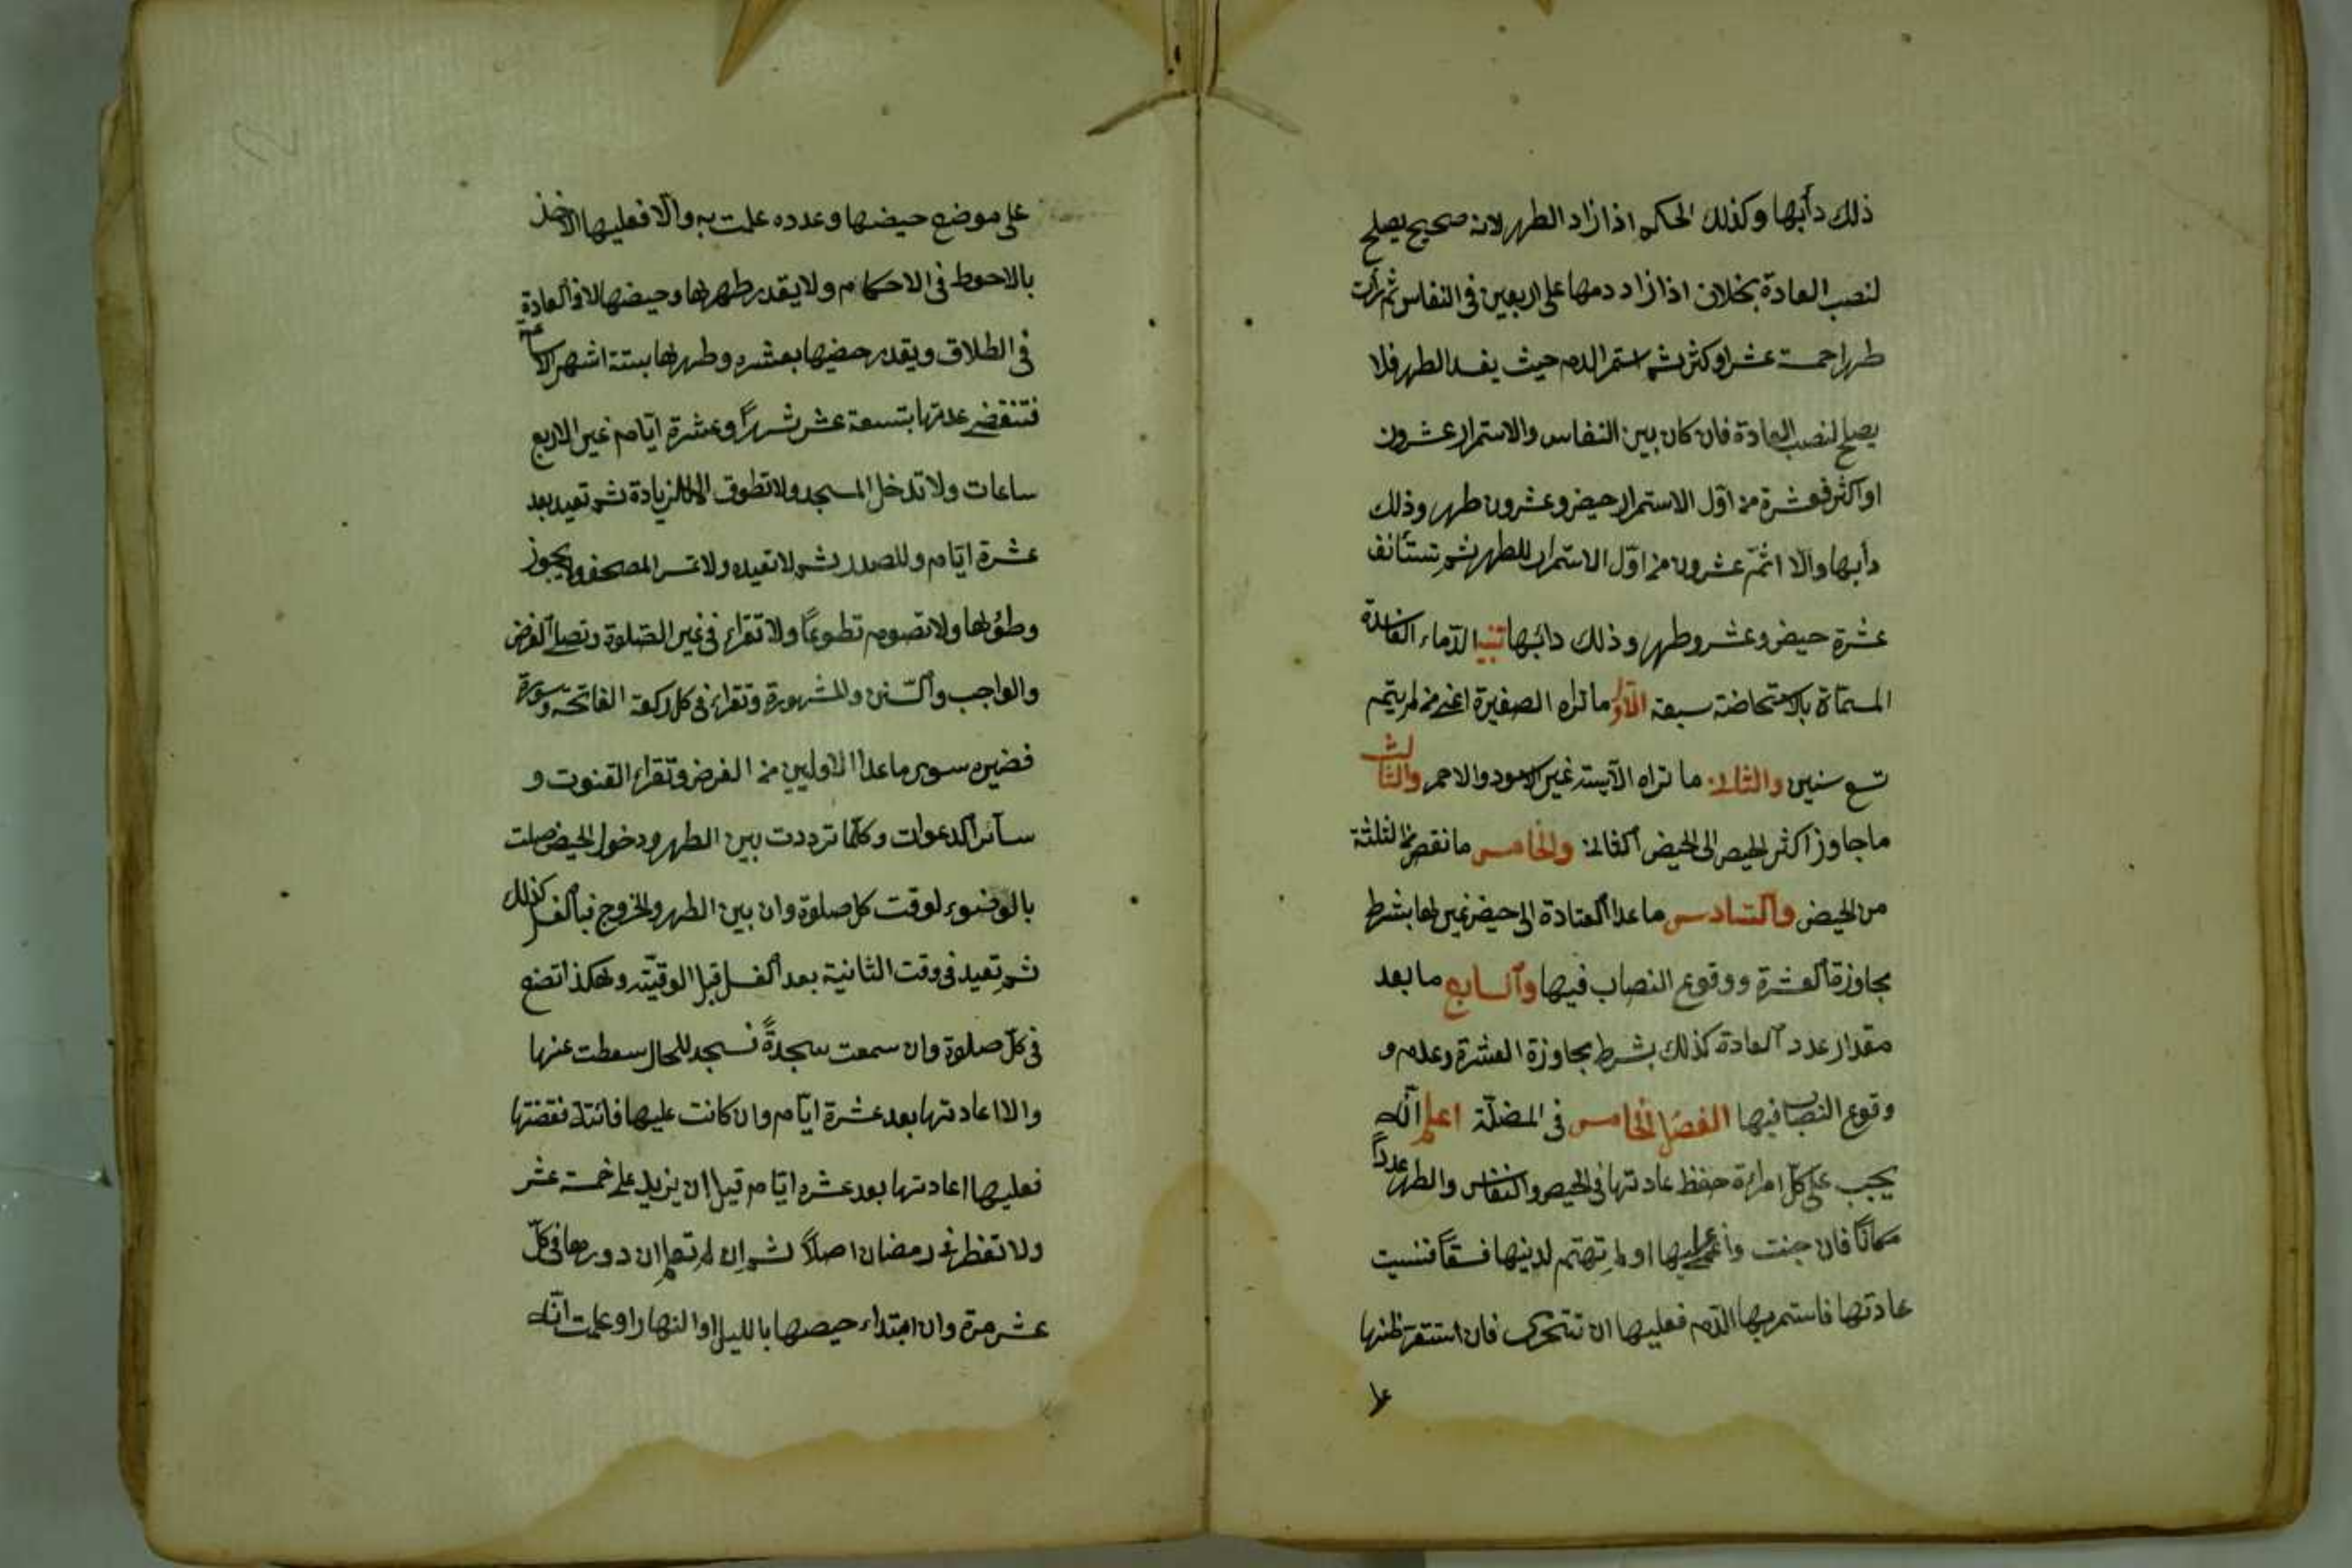 ذلك دأبها وكذلك الحكم اذا زاد الطهر لانه صحيح يصلح
لنصب العادة بخلاف اذا زاد دمها على اربعين فى النفاس ثم رأت
طهرا خمسة عشر او كثر ثم استمر الدم حيث يفسد الطهر فلا
يصلح لنصب العادة فان كان بين النفاس والاستمرار عشرون
او اكثر فعشرة من اوّل الاستمرار حيض وعشرون طهر وذلك
دأبها والّا اتمّ عشرون من اوّل الاستمرار للطهر ثم تستأنف
عشرة حيض وعشرو طهر وذلك دائبها تنبيه الدّماء الفاسدة
المسمّاة بالاستحاضة سبعة الاوّل ما تراه الصغيرة اعنى من لم يتم
تسع سنين والثانى ما تراه الآيسة غير الاسود والاحمر والثالث
ما جاوز اكثر الحيض الى الحيض الثانى والخامس ما نقص من الثلثة
من الحيض والسّادس ما عدا العادة الى حيض غيرها بشرط
مجاوزة العشرة ووقوع النصاب فيها والسابع ما بعد
مقدار عدد العادة كذلك بشرط مجاوزة العشرة وعدم و
وقوع النصاب فيها الفصل الخامس فى المضلّة اعلم انّه
يجب على كلّ امراءة حفظ عادتها فى الحيض والنفاس والطهر عدداً
مكاناً فان جنت واغمى عليها او لم تهتم لدينها فسقاً فنسيت
عادتها فاستمر بها الدّم فعليها ان تتحرى فان استقر ظنها
على
على موضع حيضها وعدده علمت به والّا فعليها الاخذ
بالاحوط فى الاحكام ولا يقدر طهرها وحيضها الا فى العادة
فى الطلاق ويقدر حيضها بعشره وطهرها بستة اشهر الا ساعة
فتنقضى عدتها بتسعة عشر شهراً وعشرة ايّام غير الاربع
ساعات ولا تدخل المسجد ولا تطوف الا للزيادة ثم تعيد بعد
عشرة ايّام وللصدر ثم لا تعيده ولا تمس المصحف ولا يجوز
وطؤها ولا تصوم تطوعاً ولا تقراء فى غير الصّلوة وتصلى الفرض
والواجب والسّنن المشهورة وتقراء فى كل ركعة الفاتحة وسورة
قصيره سوى ما عدا الاوليين من الفرض وتقراء القنوت و
سائر الدعوات وكلّما ترددت بين الطهر ودخول الحيض صلت
بالوضوء لوقت كل صلوة وان بين الطهر والخروج فبالغسل كذلك
ثم تعيد فى وقت الثانية بعد الغسل قبل الوقتيّة وهكذا تصنع
فى كلّ صلوة وان سمعت سجدةً فسجد للحال سقطت عنها
والا اعادتها بعد عشرة ايّام وان كانت عليها فائتة فقضتها
فعليها اعادتها بعد عشره ايّام قبل ان يزيد على خمسة عشر
ولا تفطر فى رمضان اصلاً ثم ان لم تعلم ان دورها فى كلّ
عشر مرة وان ابتداء حيضها بالليل او النهار او علمت انّه